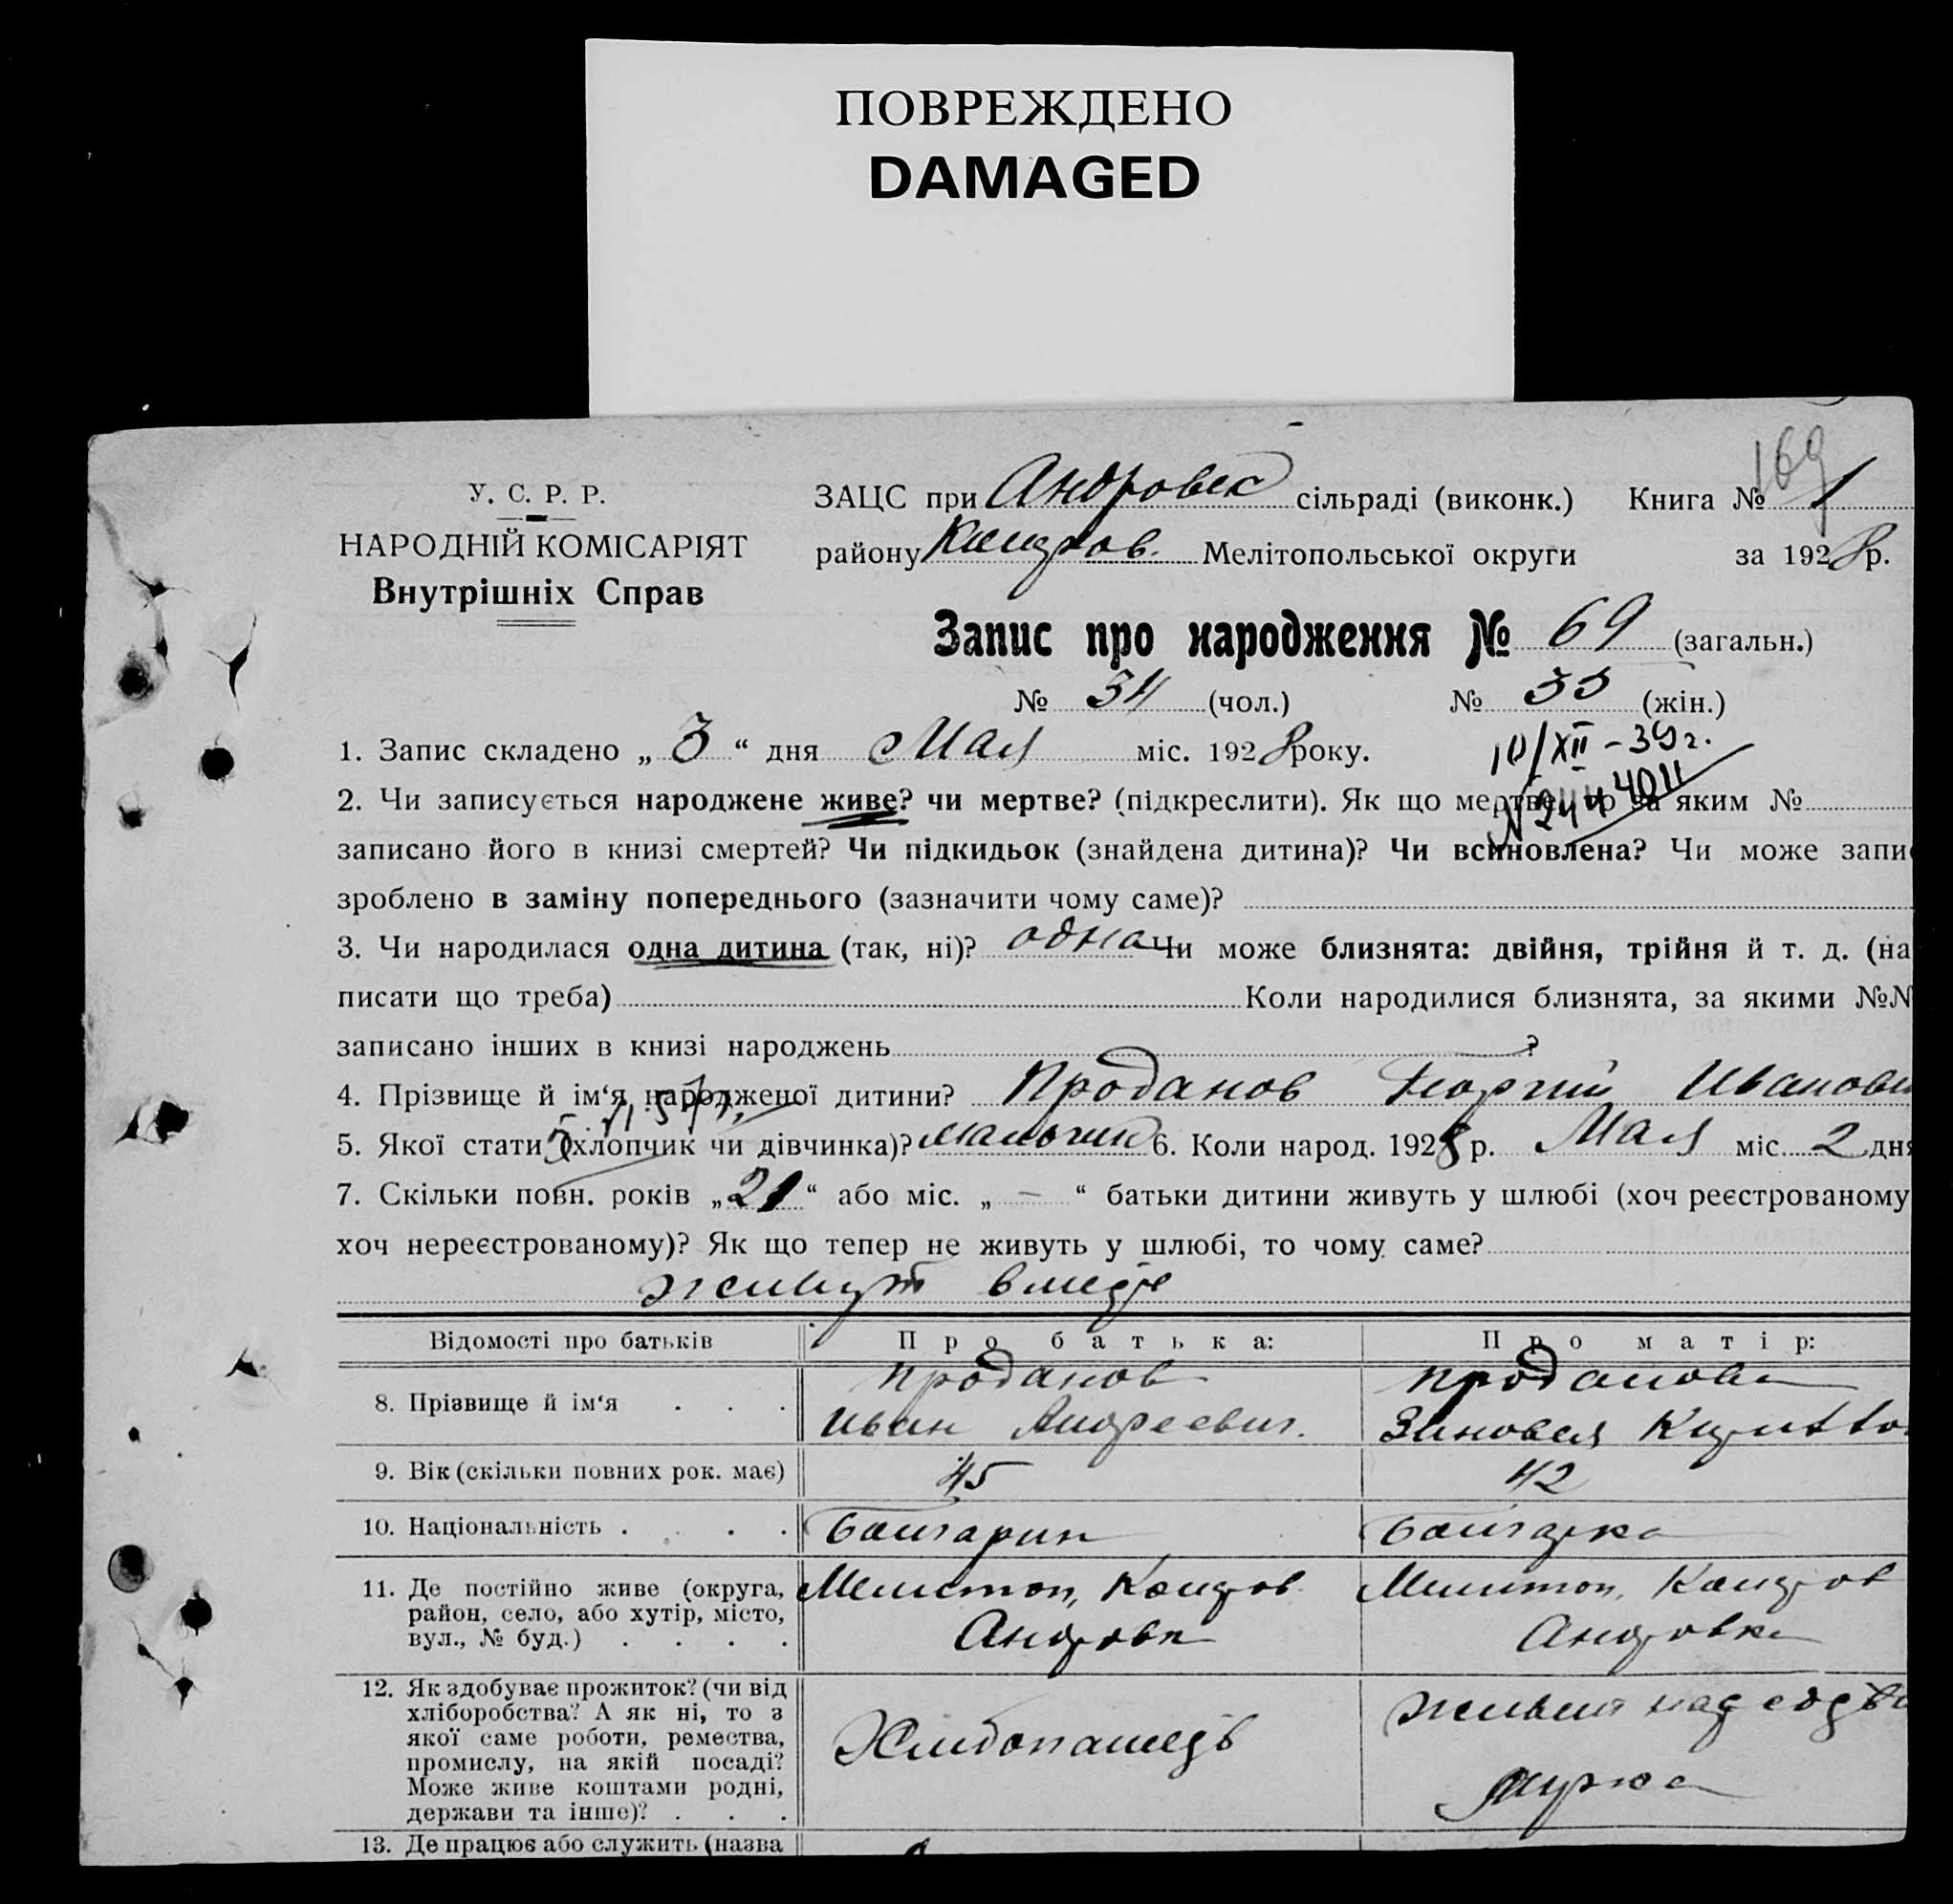 ПОВРЕЖДЕНО
DAMAGED
169
У. С. Р. Р.
НАРОДНІЙ КОМІСАРІЯТ
Внутрішніх Справ
ЗАЦС при Андровск сільраді (виконк.) Книга № 1
району Мелітопольської округи за 1928 р.
Запис про народження № 69 (загальн.)
№ 34 (чол.) № 35 (жін.)
1. Запис складено „ 3 “ дня Мая міс. 1928 року.
10/XII – 39 г.
2. Чи записується народжене живе? чи мертве? (підкреслити). Як що мертве, то за яким №
записано його в книзі смертей? Чи підкидьок (знайдена дитина)? Чи всиновлена? Чи може запи
зроблено в заміну попереднього (зазначити чому саме)?
3. Чи народилася одна дитина (так, ні)? одна Чи може близнята: двійня, трійня й т. д. (на
писати що треба) Коли народилися близнята, за якими №№
записано інших в книзі народжень ?
4. Прізвище й ім‘я народженої дитини? Проданов Георгий Иванови
5. Якої стати (хлопчик чи дівчинка)? мальчик 6. Коли народ. 1928 р. Мая міс. 2 дня
7. Скільки повн. років „ 21 “ або міс. „ — “ батьки дитини живуть у шлюбі (хоч реєстрованому
хоч нереєстрованому)? Як що тепер не живуть у шлюбі, то чому саме?
живут вместе
Відомості про батьків Про батька: Про матір:
8. Прізвище й ім‘я . . . Проданов Проданова
Иван Андреевич. Зиновея
9. Вік (скільки повних рок. має) 45 42
10. Національність . . . . Болгарин Болгарка
11. Де постійно живе (округа, Мелитоп, Мелитоп,
район, село, або хутір, місто,
вул., № буд.) . . . . Андровка Андровка
12. Як здобуває прожиток? (чи від
хліборобства? А як ні, то з
якої саме роботи, ремества, Хлибопашець
промислу, на якій посаді?
Може живе коштами родні, мужа
держави та інше)? . . .
13. Де працює або служить (назва